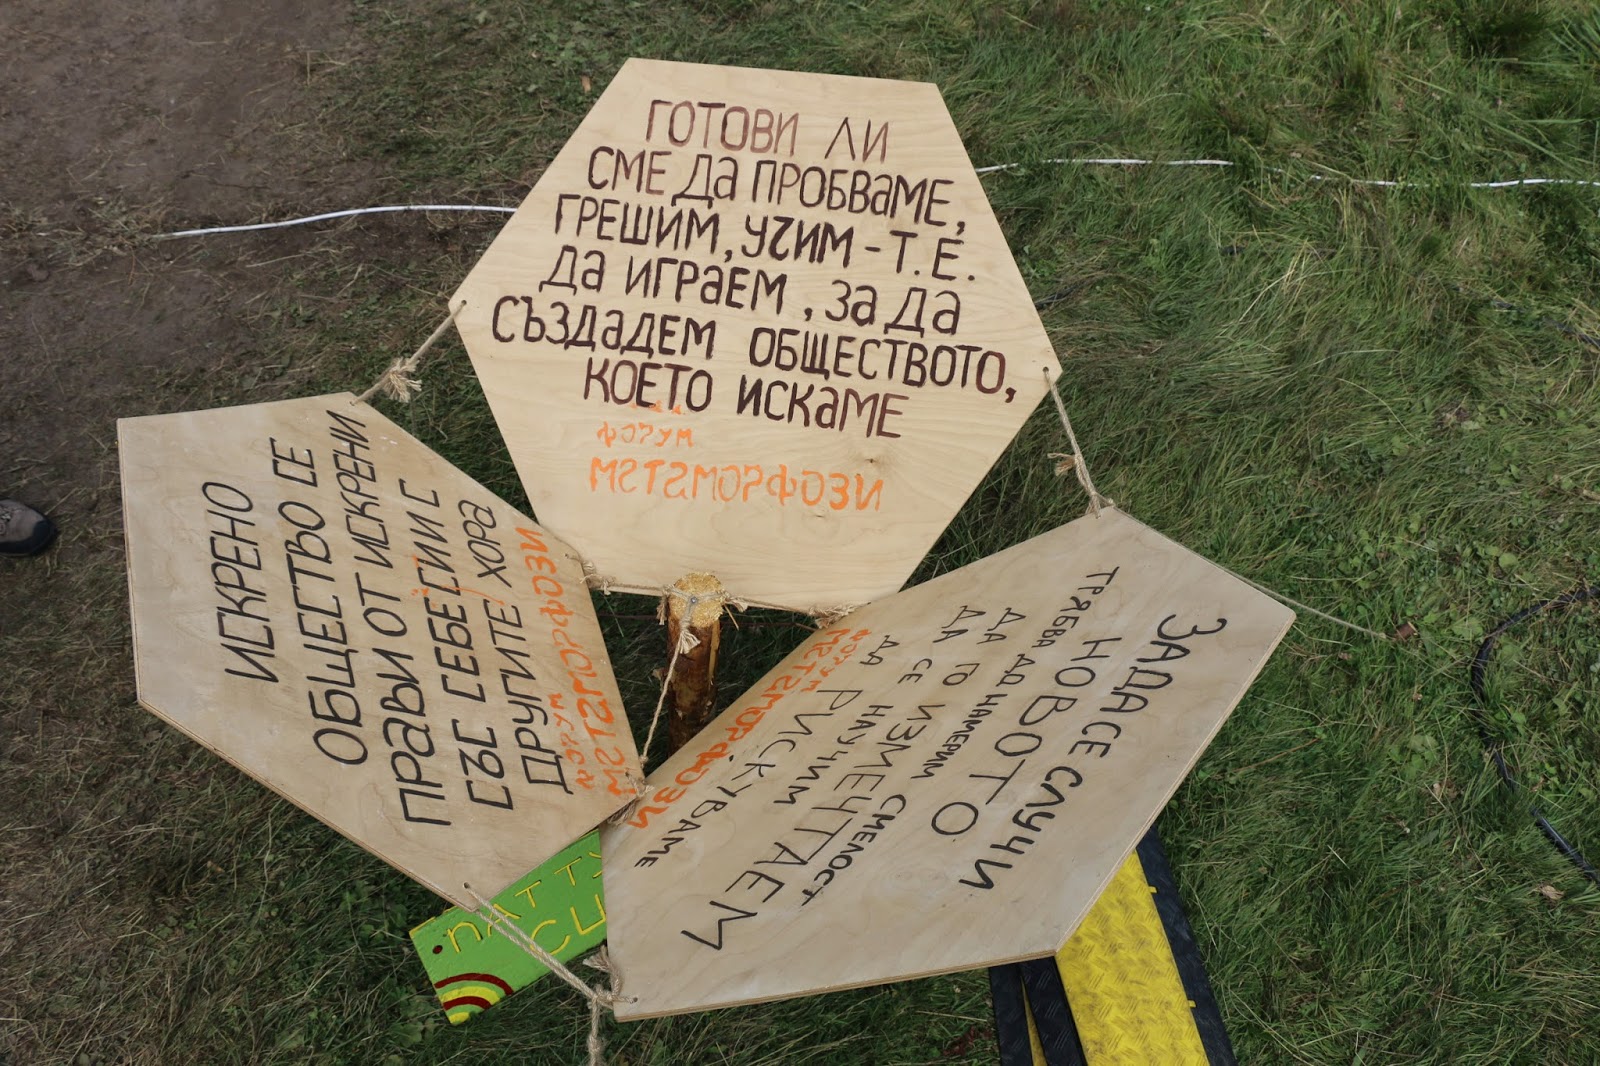 ГОТОВИ ЛИ
СМЕ ДА ПРОБВАМЕ,
ГРЕШИМ, УЧИМ - Т.Е.
ДА ИГРАЕМ, ЗА ДА
СЪЗДАДЕМ ОБЩЕСТВОТО,
КОЕТО ИСКАМЕ
форум
метаморфози
ИСКРЕНО
ОБЩЕСТВО СЕ
ПРАВИ ОТ ИСКРЕНИ
СЪС СЕБЕ СИ И С
ДРУГИТЕ ХОРА
форум
метаморфози
ЗА ДА СЕ СЛУЧИ
НОВОТО
ТРЯБВА ДА НАМЕРИМ СМЕЛОСТ
ДА ГО ИЗМЕЧТАЕМ
ДА СЕ НАУЧИМ
ДА РИСКУВАМЕ
форум
метаморфози